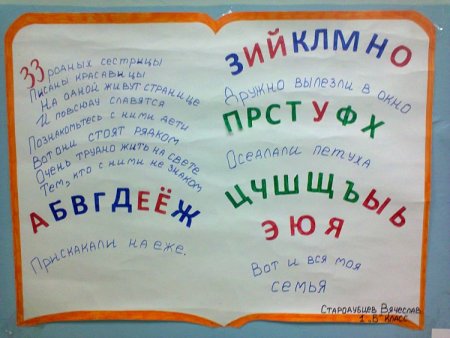 33 родных сестрицы
Писаны красавицы
На одной живут странице
И повсюду славятся
Познакомьтесь с ними дети
Вот они стоят рядком
Очень трудно жить на свете
Тем, кто с ними не знаком
АБВГДЕЁЖ
Прискакали на еже.
ЗИЙКЛМНО
Дружно вылезли в окно
ПРСТУФХ
Оседлали петуха
ЦЧШЩЪЫЬ
ЭЮЯ
Вот и вся моя
семья
Стародубцев Вячеслав
1 "Б" класс